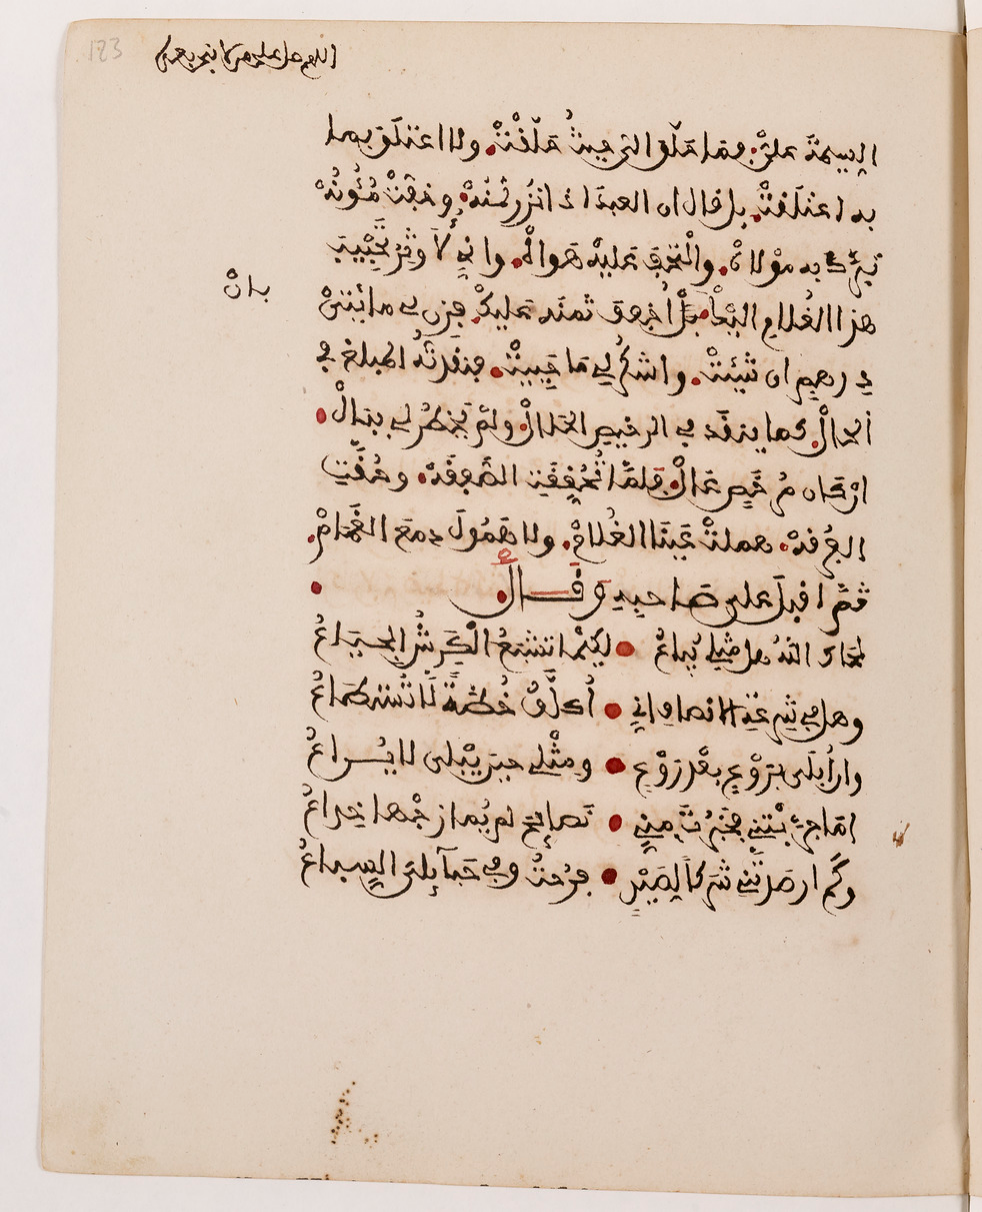 اللهم صل على من لا نبي بعده
السيمة علي فما حلق الى حيث حلقت ولا اعتلق بما
به اعتلقت بل قال ان العبد اذا نزر ثمنه وخفت مؤنه
تبرك به مولاه والتحف عليه هواه واني لاوثر تحبيب
هذا الغلام اليك أخفف ثمنه عليك فزن لي مائتي
بان
درهم ان شئت واشكر لي ما حييت فنقدته المبلغ في
الحال كما ينقد في الرخيص الحلال ولم يخطر لي ببال
ان كل مرخص غال فلما تحققت الصفقة وحقت
الفرقة هملت عينا الغلام ولا همول دمع الغمام
ثم اقبل على صاحبه وقال
لحاك الله هل مثلي يباع لكيما تشبع الكرش الجياع
وهل في شرعة الانصاف اني أكلف خطة لا تستطاع
وان أبلى بروع بعد روع ومثلي حين يبلى لا يراع
اما جربتني فخبرت مني نصائح لم يمازجها خداع
وكم ارصدتني شركا لصيد فرحت وفي حبآيلي السباع